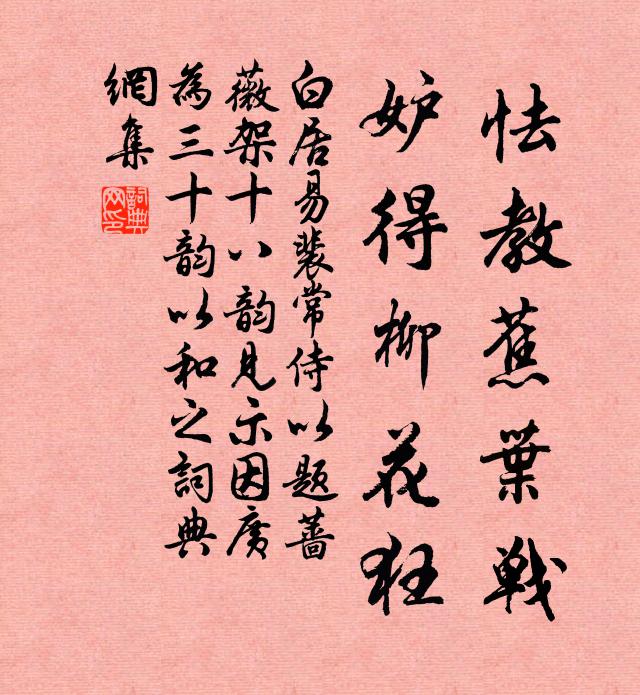 怯教蕉葉戰
妒得柳花狂
白居易裴常侍以題薔
薇架十八韵見示因廣
為三十韵以和之詞典
網集
詞典
网印